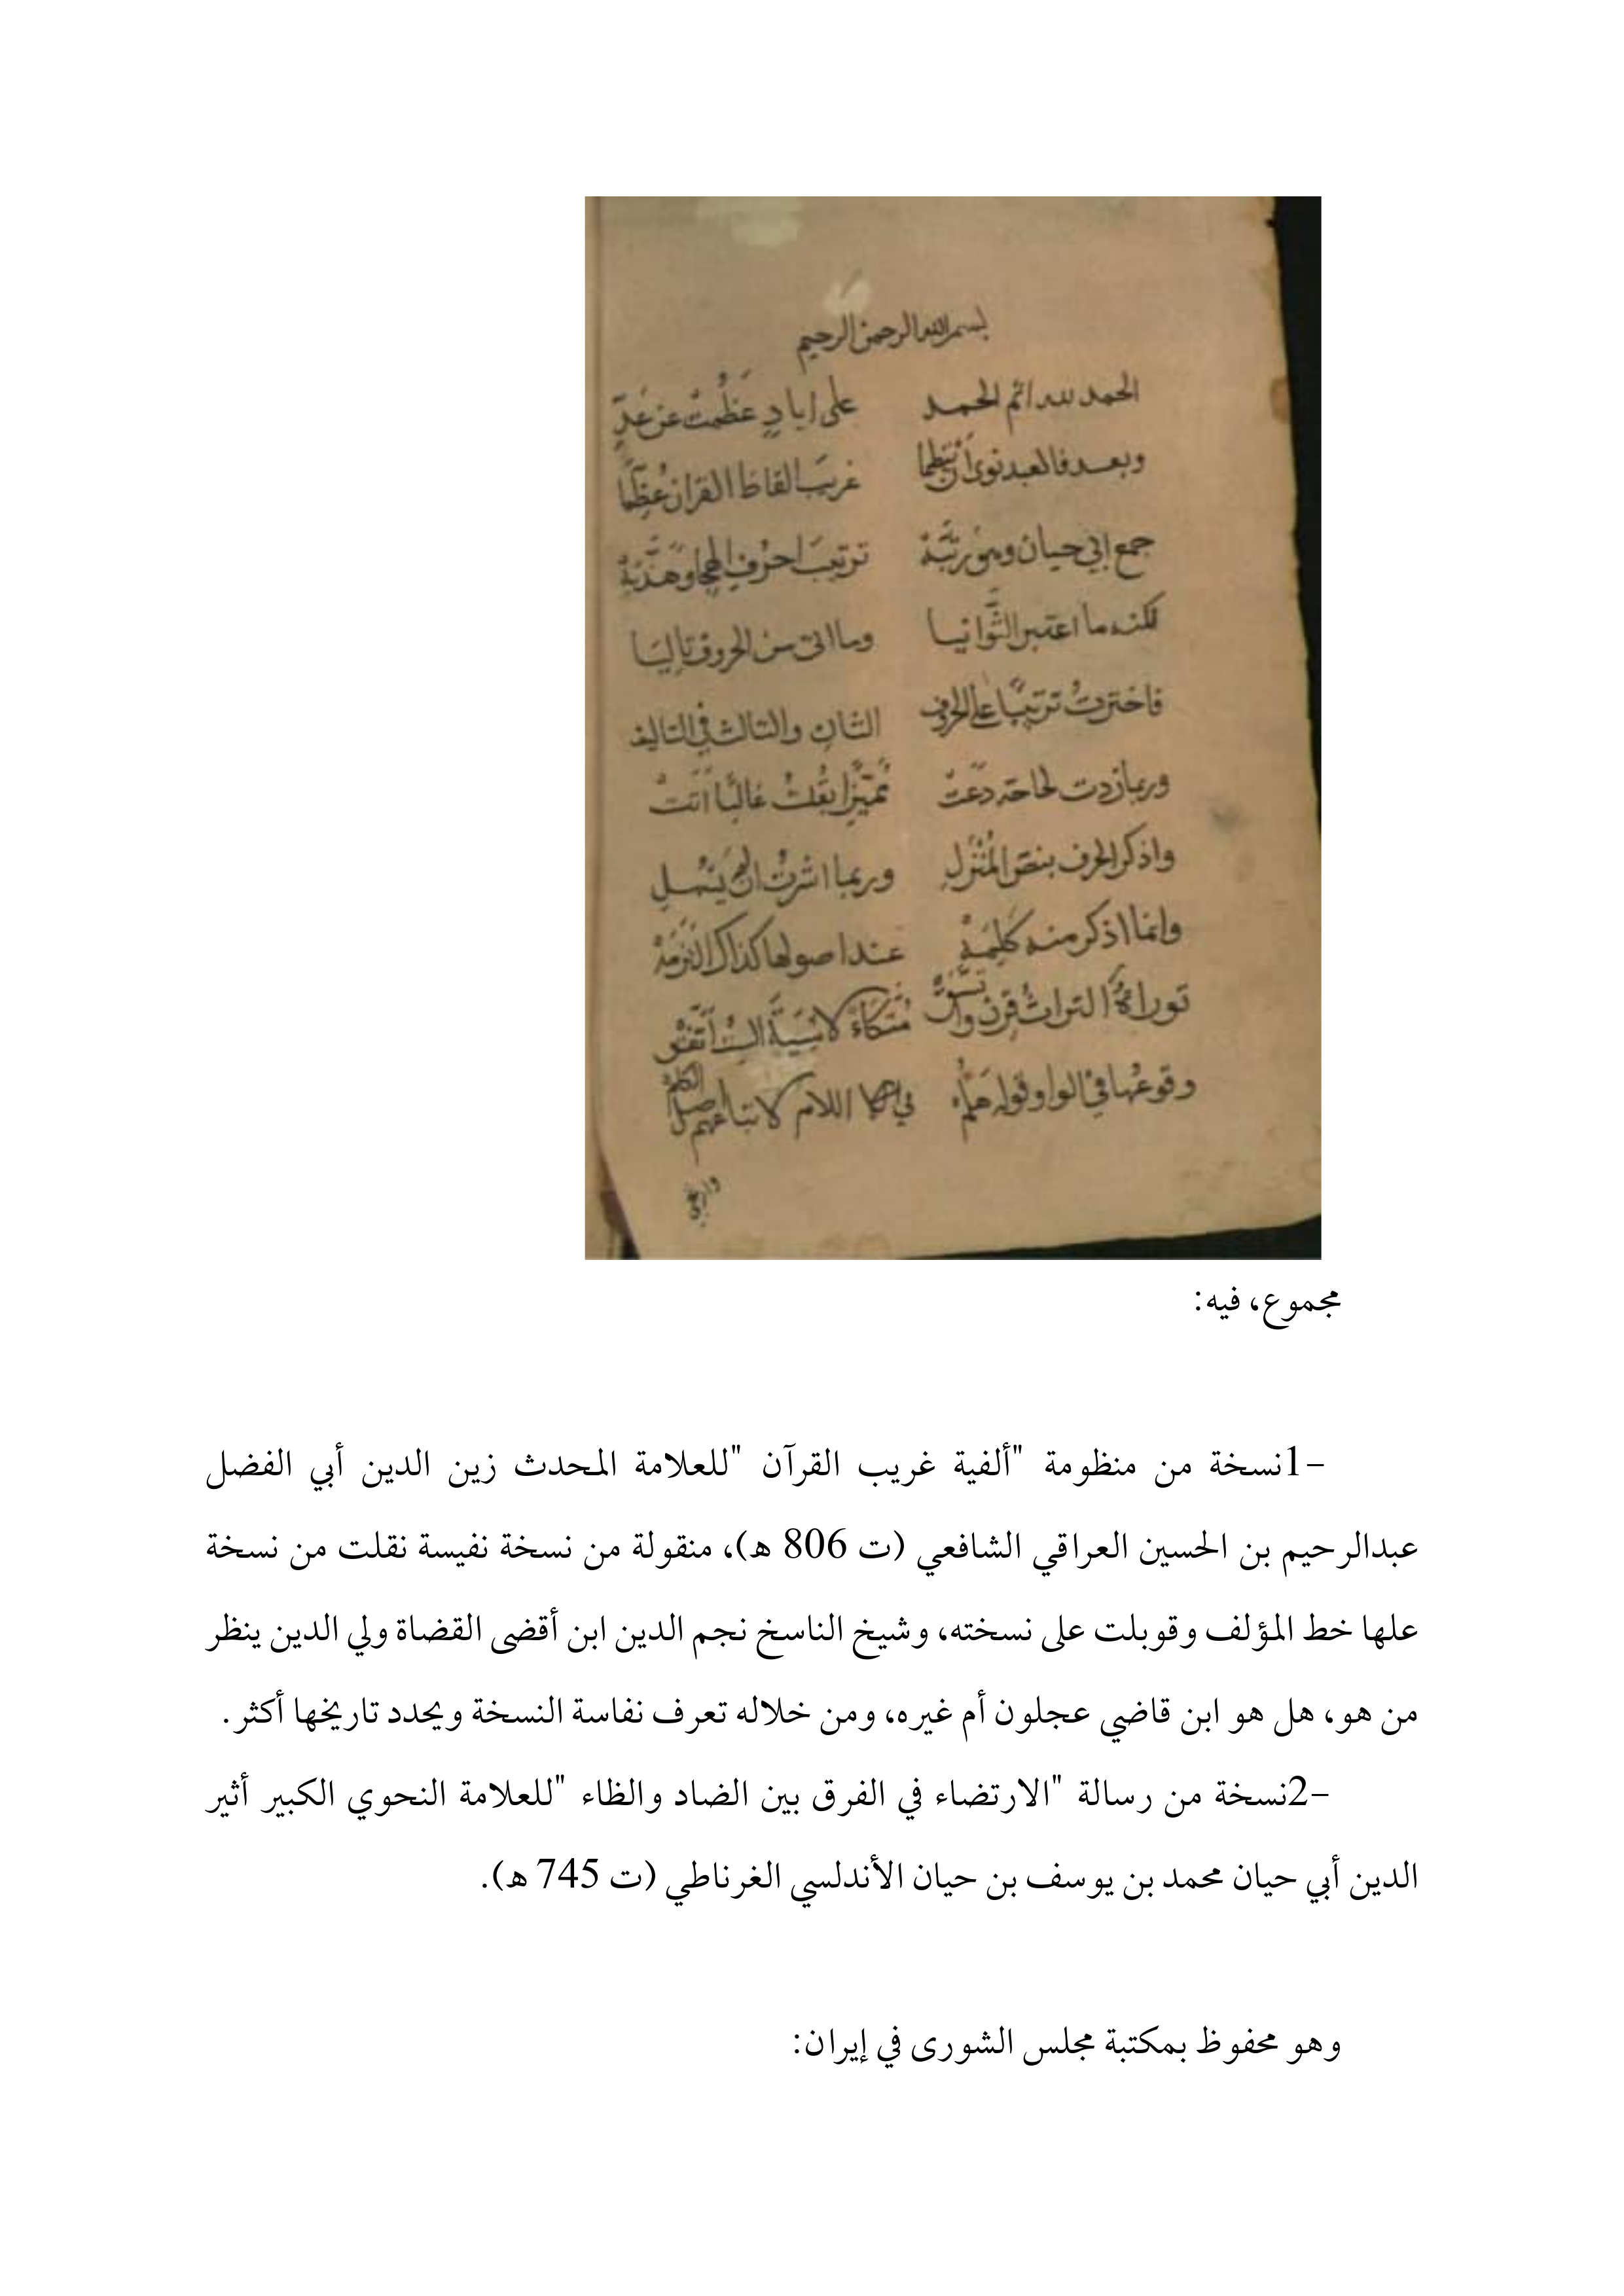 بسم الله الرحمن الرحيم
الحمد لله اتم الحمد على اياد عَظُمت عن عَدِّ
وبعد فالعبد نوى ان ينظما غريبَ الفاظ القران عُظِّمَا
جمع ابي حيان وهو رتبه ترتيبَ احرُف الهجا وهذبه
لكنه ما اعتبر الثَّوانيا وما اتى من الحروف تاليَا
فاخترتُ ترتيبًا على الحروف الثان والثالث في التاليف
وربما زدت لحاجة دَعَتْ تميُّزا بقُلتُ غالبًا اتَتْ
واذكر الحرف بنص المُنْزَلِ وربما اشرتُ ان لم يَسْهُلِ
وانما اذكر منه كَلِمَهْ عند اصولها كذاك التزمَهْ
توراةُ التراثُ قرن واتَّسَقْ مُتَّكَاءً لا شِيَةَ الست اتَّفَقْ
وقوعُها في الواو قوله هَلُمْ في اللام لا تباعهم اصل الكلم
مجموع، فيه:
-1نسخة من منظومة "ألفية غريب القرآن "للعلامة المحدث زين الدين أبي الفضل
عبدالرحيم بن الحسين العراقي الشافعي (ت 806 هـ)، منقولة من نسخة نفيسة نقلت من نسخة
علها خط المؤلف وقوبلت على نسخته، وشيخ الناسخ نجم الدين ابن أقضى القضاة ولي الدين ينظر
من هو، هل هو ابن قاضي عجلون أم غيره، ومن خلاله تعرف نفاسة النسخة ويحدد تاريخها أكثر.
-2نسخة من رسالة "الارتضاء في الفرق بين الضاد والظاء "للعلامة النحوي الكبير أثير
الدين أبي حيان محمد بن يوسف بن حيان الأندلسي الغرناطي (ت 745 هـ).
وهو محفوظ بمكتبة مجلس الشورى في إيران: